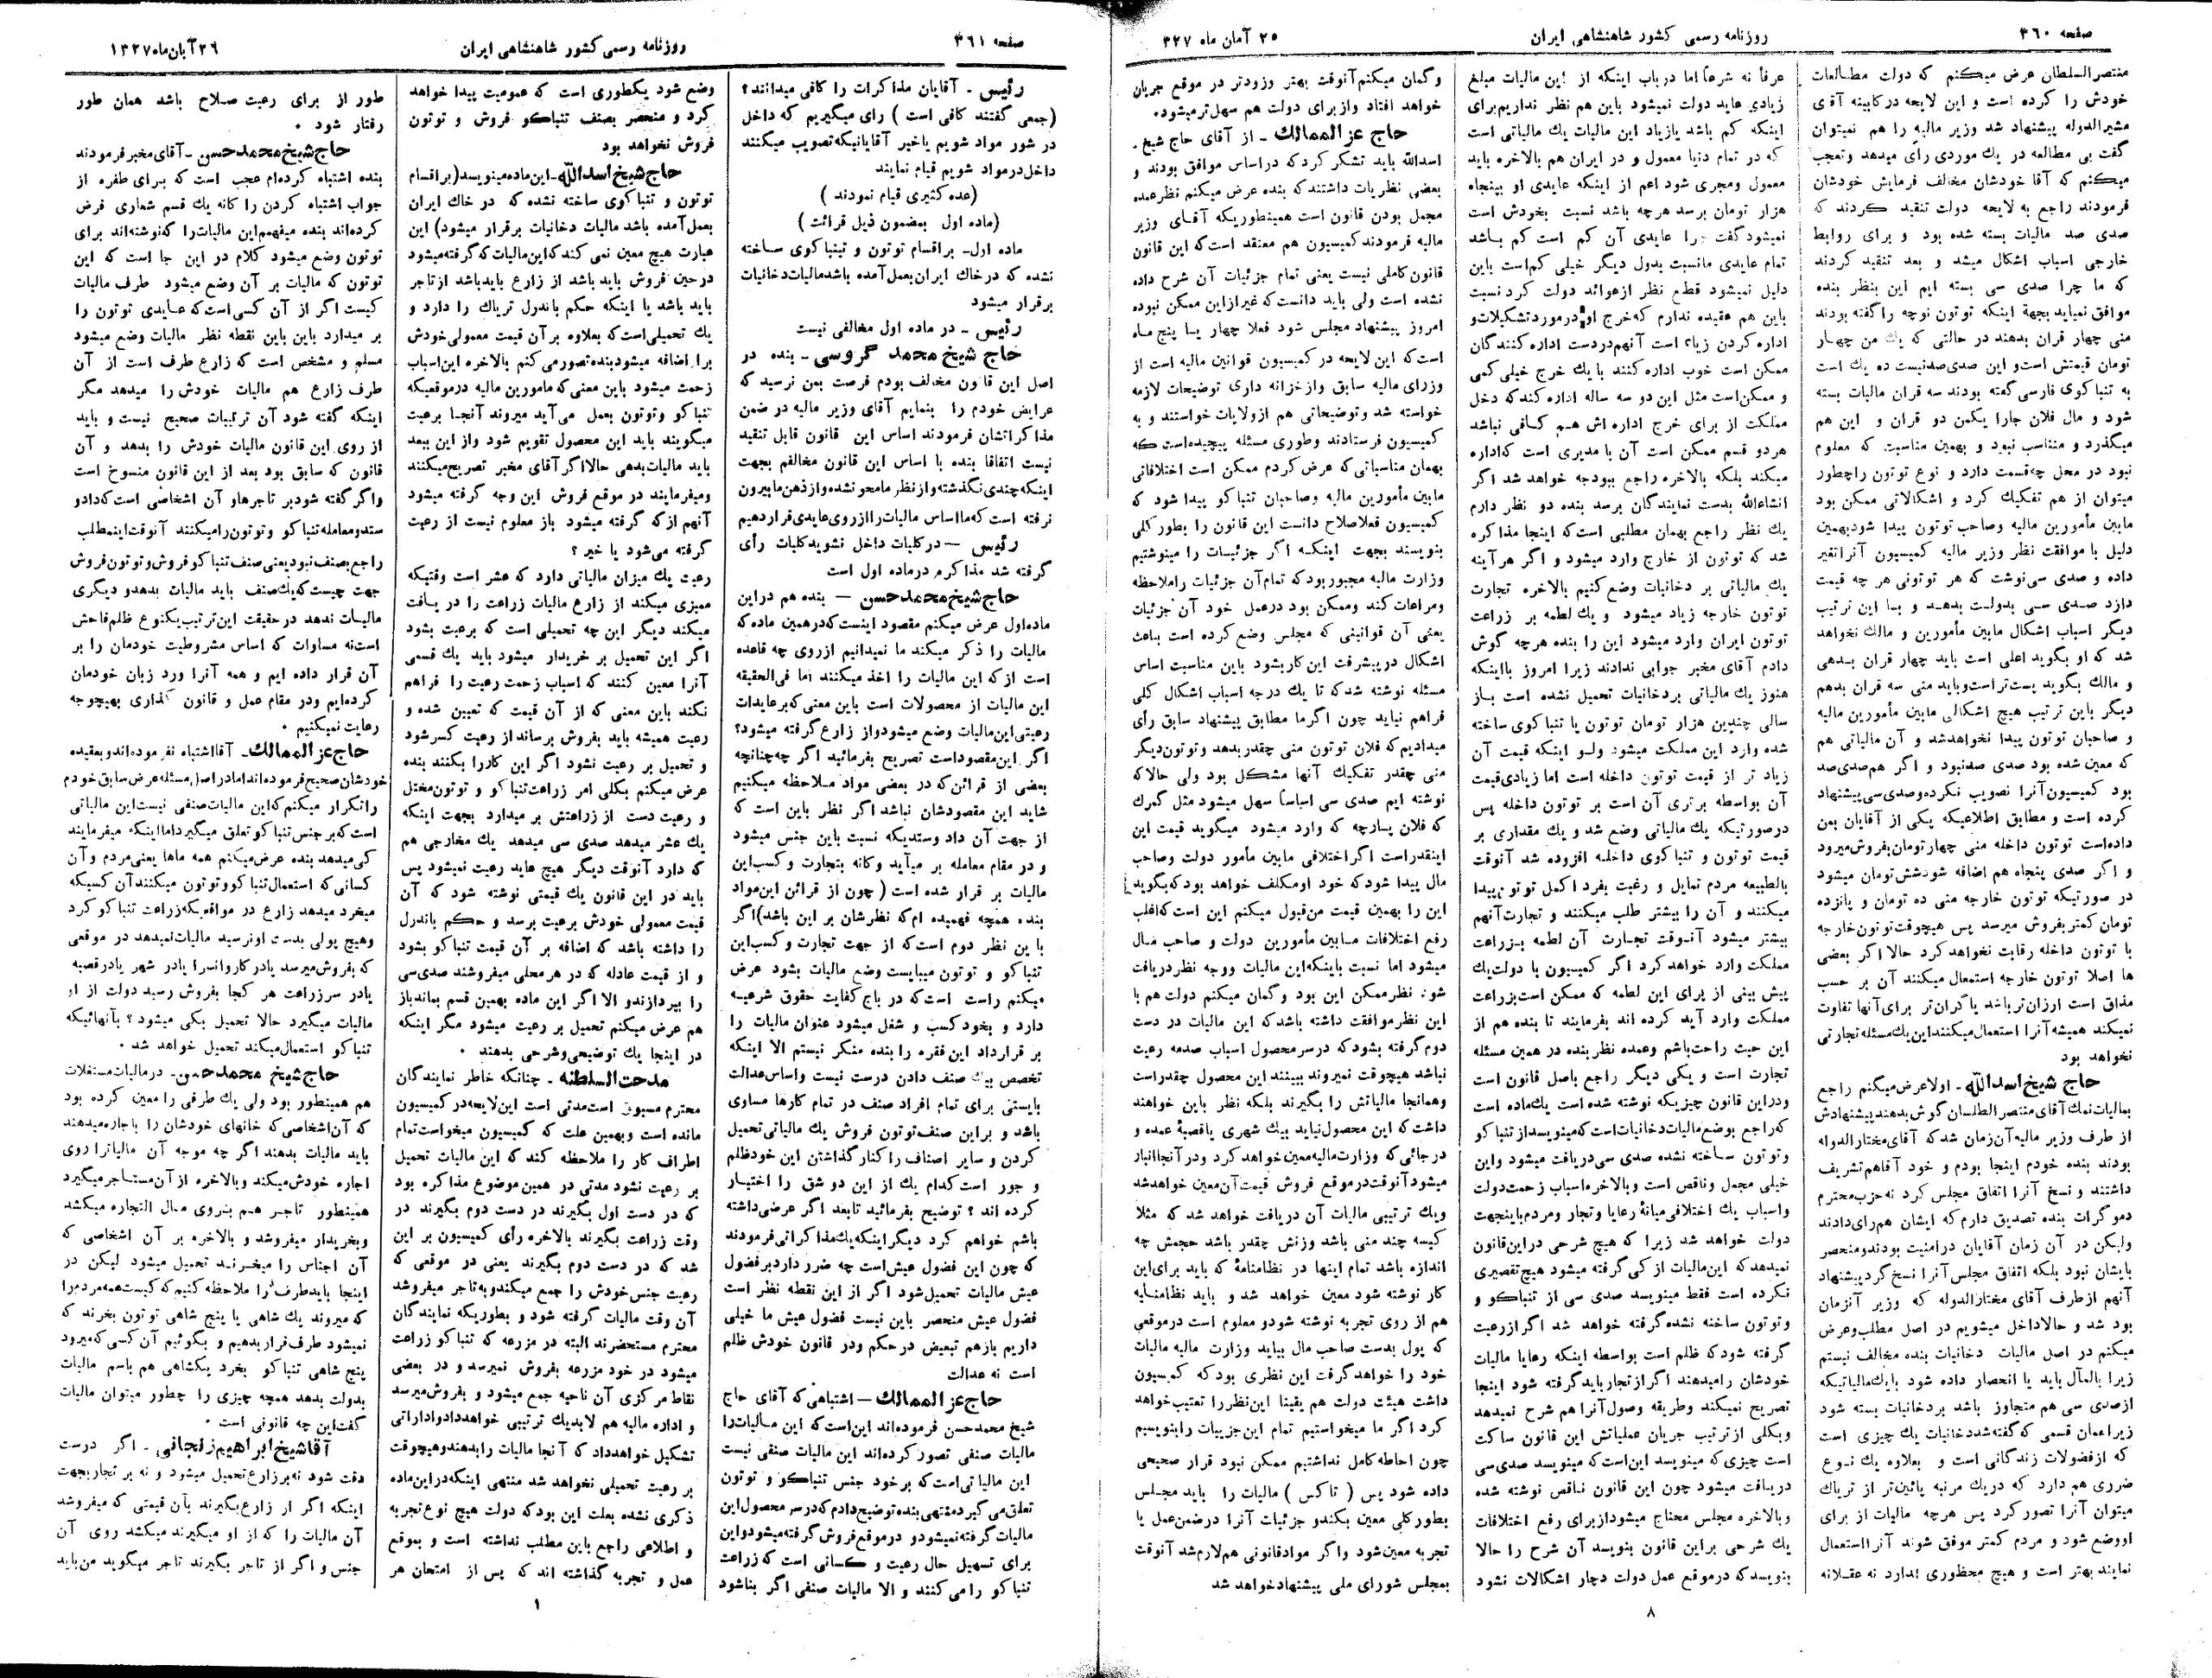 صفحه ۳۶۰
روزنامه رسمی کشور شاهنشاهی ایران
۲۵ آبان ماه ۳۲۷
منتصرالسلطان عرض میکنم که دولت مطالعات
خودش را کرده است و این لایحه در کابینه آقای
مشیرالدوله پیشنهاد شد وزیر مالیه را هم نمیتوان
گفت بی مطالعه در یك موردی رأی میدهد وتعجب
میکنم که آقا خودشان مخالف فرمایش خودشان
فرمودند راجع به لایحه دولت تنقید کردند که
صدی صد مالیات بسته شده بود و برای روابط
خارجی اسباب اشکال میشد و بعد تنقید کردند
که ما چرا صدی سی بسته ایم این بنظر بنده
موافق نمیاید بجهة اینکه توتون نوچه را گفته بودند
منی چهار قران بدهند در حالتی که یك من چهار
تومان قیمتش است و این صدی صد نیست ده یك است
به تنباکوی فارسی گفته بودند سه قران مالیات بسته
شود و مال فلان جارا یکمن دو قران و این هم
میگذرد و متناسب نبود و بهمین مناسبت که معلوم
نبود در محل چه قسمت دارد و نوع توتون راچطور
میتوان از هم تفکیك کرد و اشکالاتی ممکن بود
مابین مأمورین مالیه وصاحب توتون پیدا شود بهمین
دلیل با موافقت نظر وزیر مالیه کمیسیون آنرا تغیر
داده و صدی سی نوشت که هر توتونی هر چه قیمت
دارد صدی سی بدولت بدهد و با این ترتیب
دیگر اسباب اشکال مابین مأمورین و مالك نخواهد
شد که او بگوید اعلی است باید چهار قران بدهی
و مالك بگوید پست تر است و باید منی سه قران بدهم
دیگر باین ترتیب هیچ اشکالی مابین مأمورین مالیه
و صاحبان توتون پیدا نخواهد شد و آن مالیاتی هم
که معین شده بود صدی صد نبود و اگر هم صدی صد
بود کمیسیون آنرا تصویب نکرده و صدی سی پیشنهاد
کرده است و مطابق اطلاعیکه یکی از آقایان بمن
داده است توتون داخله منی چهار تومان بفروش میرود
و اگر صدی پنجاه هم اضافه شود شش تومان میشود
در صورتیکه توتون خارجه منی ده تومان و پانزده
تومان کمتر بفروش میرسد پس هیچوقت توتون خارجه
با توتون داخله رقابت نخواهد کرد حالا اگر بعضی
ها اصلا توتون خارجه استعمال میکنند آن بر حسب
مذاق است ارزان تر باشد یا گران تر برای آنها تفاوت
نمیکند همیشه آنرا استعمال میکنند این یك مسئله تجارتی
نخواهد بود
حاج شیخ اسدالله ـ اولا عرض میکنم راجع
بمالیات نمك آقای منتصر السلطان گوش بدهند پیشنهادش
از طرف وزیر مالیه آن زمان شد که آقای مختارالدوله
بودند بنده خودم اینجا بودم و خود آقا هم تشریف
داشتند و نسخ آنرا اتفاق مجلس کرد نه حزب محترم
دموکرات بنده تصدیق دارم که ایشان هم رای دادند
ولیکن در آن زمان آقایان در امنیت بودند و منحصر
بایشان نبود بلکه اتفاق مجلس آنرا نسخ گرد پیشنهاد
آنهم از طرف آقای مختارالدوله که وزیر آنزمان
بود شد و حالا داخل میشویم در اصل مطلب و عرض
میکنم در اصل مالیات دخانیات بنده مخالف نیستم
زیرا بالمآل باید یا انحصار داده شود یا یك مالیاتیکه
از صدی سی هم متجاوز باشد بر دخانیات بسته شود
زیرا همان قسمی که گفته شد دخانیات یك چیزی است
که از فضولات زندگانی است و بعلاوه یك نوع
ضرری هم دارد که در یك مرتبه پائین تر از تریاك
میتوان آنرا تصور کرد پس هرچه مالیات از برای
او وضع شود و مردم کمتر موفق شوند آنرا استعمال
نمایند بهتر است و هیچ محظوری ندارد نه عقلانه
عرفاً نه شرعاً اما در باب اینکه از این مالیات مبلغ
زیادی عاید دولت نمیشود باین هم نظر نداریم برای
اینکه کم باشد یا زیاد این مالیات یك مالیاتی است
که در تمام دنیا معمول و در ایران هم بالاخره باید
معمول ومجری شود اعم از اینکه عایدی او بپنجاه
هزار تومان برسد هرچه باشد نسبت بخودش است
نمیشود گفت چرا عایدی آن کم است کم باشد
تمام عایدی ما نسبت بدول دیگر خیلی کم است باین
دلیل نمیشود قطع نظر از عوائد دولت کرد نسبت
باین هم عقیده ندارم که خرج او در مورد تشکیلات و
اداره کردن زیاد است آنهم در دست اداره کنندگان
ممکن است خوب اداره کنند با یك خرج خیلی کمی
و ممکن است مثل این دو سه ساله اداره کند که دخل
مملکت از برای خرج اداره اش هم کافی نباشد
هر دو قسم ممکن است آن با مدیری است که اداره
میکند بلکه بالاخره راجع ببودجه خواهد شد اگر
انشاءالله بدست نمایندگان برسد بنده دو نظر دارم
یك نظر راجع بهمان مطلبی است که اینجا مذاکره
شد که توتون از خارج وارد میشود و اگر هر آینه
یك مالیاتی بر دخانیات وضع کنیم بالاخره تجارت
توتون خارجه زیاد میشود و یك لطمه بر زراعت
توتون ایران وارد میشود این را بنده هرچه گوش
دادم آقای مخبر جوابی ندادند زیرا امروز بااینکه
هنوز یك مالیاتی بر دخانیات تحمیل نشده است باز
سالی چندین هزار تومان توتون یا تنباکوی ساخته
شده وارد این مملکت میشود ولو اینکه قیمت آن
زیاد تر از قیمت توتون داخله است اما زیادی قیمت
آن بواسطه برتری آن است بر توتون داخله پس
در صورتیکه یك مالیاتی وضع شد و یك مقداری بر
قیمت توتون و تنباکوی داخله افزوده شد آنوقت
بالطبیعه مردم تمایل و رغبت بفرد اکمل توتون پیدا
میکنند و آن را بیشتر طلب میکنند و تجارت آنهم
بیشتر میشود آنوقت تجارت آن لطمه بزراعت
مملکت وارد خواهد کرد اگر کمیسیون یا دولت یك
پیش بینی از برای این لطمه که ممکن است بزراعت
مملکت وارد آید کرده اند بفرمایند تا بنده هم از
این حیث راحت باشم وعمده نظر بنده در همین مسئله
تجارت است و یکی دیگر راجع باصل قانون است
ودر این قانون چیزیکه نوشته شده است یك ماده است
که راجع بوضع مالیات دخانیات است که مینویسد از تنباکو
و توتون ساخته نشده صدی سی دریافت میشود و این
خیلی مجمل و ناقص است و بالاخره اسباب زحمت دولت
و اسباب یك اختلافی میانهٔ رعایا و تجار و مردم باینجهت
دولت خواهد شد زیرا که هیچ شرحی در این قانون
نمیدهد که این مالیات از کی گرفته میشود هیچ تقصیری
نکرده است فقط مینویسد صدی سی از تنباکو و
وتوتون ساخته نشده گرفته خواهد شد اگر از رعیت
گرفته شود که ظلم است بواسطه اینکه رعایا مالیات
خودشان را میدهند اگر از تجار باید گرفته شود اینجا
تصریح نمیکند وطریقه وصول آنرا هم شرح نمیدهد
وبکلی از ترتیب جریان عملیاتش این قانون ساکت
است چیزی که مینویسد این است که مینویسد صدی سی
دریافت میشود چون این قانون ناقص نوشته شده
وبالاخره مجلس محتاج میشود از برای رفع اختلافات
یك شرحی بر این قانون بنویسد آن شرح را حالا
بنویسد که در موقع عمل دولت دچار اشکالات نشود
وگمان میکنم آنوقت بهتر وزودتر در موقع جریان
خواهد افتاد واز برای دولت هم سهل تر میشود.
حاج عز الممالك ـ از آقای حاج شیخ ـ
اسدالله باید تشکر کرد که در اساس موافق بودند و
بعضی نظریات داشتند که بنده عرض میکنم نظر عمده
مجمل بودن قانون است همینطوریکه آقای وزیر
مالیه فرمودند کمیسیون هم معتقد است که این قانون
قانون کاملی نیست یعنی تمام جزئیات آن شرح داده
نشده است ولی باید دانست که غیر از این ممکن نبوده
امروز پیشنهاد مجلس شود فعلا چهار یا پنج ماه
است که این لایحه در کمیسیون قوانین مالیه است از
وزرای مالیه سابق واز خزانه داری توضیحات لازمه
خواسته شد وتوضیحاتی هم از ولایات خواستند و به
کمیسیون فرستادند وطوری مسئله پیچیده است که
بهمان مناسباتی که عرض کردم ممکن است اختلافاتی
مابین مأمورین مالیه وصاحبان تنباکو پیدا شود که
کمیسیون فعلا صلاح دانست این قانون را بطور کلی
بنویسند بجهت اینکه اگر جزئیات را مینوشتیم
وزارت مالیه مجبور بود که تمام آن جزئیات را ملاحظه
ومراعات کند وممکن بود در عمل خود آن جزئیات
یعنی آن قوانینی که مجلس وضع کرده است بباعث
اشکال در پیشرفت این کار بشود باین مناسبت اساس
مسئله نوشته شد که تا یك درجه اسباب اشکال کلی
فراهم نیاید چون اگر ما مطابق پیشنهاد سابق رأی
میدادیم که فلان توتون منی چقدر بدهد وتوتون دیگر
منی چقدر تفکیك آنها مشکل بود ولی حالا که
نوشته ایم صدی سی اساسا سهل میشود مثل گمرك
که فلان پارچه که وارد میشود میگوید قیمت این
اینقدر است اگر اختلافی مابین مأمور دولت وصاحب
مال پیدا شود که خود او مکلف خواهد بود که بگوید
این را بهمین قیمت من قبول میکنم این است که اغلب
رفع اختلافات مابین مأمورین دولت و صاحب مال
میشود اما نسبت باینکه این مالیات ووجه نظر دریافت
شود نظر ممکن این بود وگمان میکنم دولت هم با
این نظر موافقت داشته باشد که این مالیات در دست
دوم گرفته بشود که در سر محصول اسباب صدمه رعیت
نباشد هیچوقت نمیروند ببینند این محصول چقدر است
وهمانجا مالیاتش را بگیرند بلکه نظر باین خواهند
داشت که این محصول نباید بیك شهری یا قصبهٔ عمده و
در جائی که وزارت مالیه معین خواهد کرد ودر آنجا انبار
میشود آنوقت در موقع فروش قیمت آن معین خواهد شد
ویك ترتیبی مالیات آن دریافت خواهد شد که مثلا
کیسه چند منی باشد وزنش چقدر باشد حجمش چه
اندازه باشد تمام اینها در نظامنامهٔ که باید برای این
کار نوشته شود معین خواهد شد و باید نظامنامه
هم از روی تجربه نوشته شود و معلوم است در موقعی
که پول بدست صاحب مال بیاید وزارت مالیه مالیات
خود را خواهد گرفت این نظری بود که کمیسیون
داشت هیئت دولت هم یقینا این نظر را تعقیب خواهد
کرد اگر ما میخواستیم تمام این جزییات را بنویسیم
چون احاطه کامل نداشتیم ممکن نبود قرار صحیحی
داده شود پس ( تاکس ) مالیات را باید مجلس
بطور کلی معین بکند و جزئیات آنرا در ضمن عمل یا
تجربه معین شود واگر مواد قانونی هم لازم شد آنوقت
بمجلس شورای ملی پیشنهاد خواهد شد
۸
صفحه ۳۶۱
روزنامه رسمی کشور شاهنشاهی ایران
۲۶ آبان ماه ۱۳۲۷
رئیس ـ آقایان مذاکرات را کافی میدانند؟
(جمعی گفتند کافی است) رای میگیریم که داخل
در شور مواد شویم یا خیر آقایانیکه تصویب میکنند
داخل در مواد شویم قیام نمایند
(عده کثیری قیام نمودند)
(ماده اول بمضمون ذیل قرائت)
ماده اول ـ براقسام توتون و تینباکوی ساخته
نشده که در خاك ایران بعمل آمده باشد مالیات دخانیات
برقرار میشود
رئیس ـ در ماده اول مخالفی نیست
حاج شیخ محمد گروسی ـ بنده در
اصل این قانون مخالف بودم فرصت بمن نرسید که
عرایض خودم را بنمایم آقای وزیر مالیه در ضمن
مذاکراتشان فرمودند اساس این قانون قابل تنقید
نیست اتفاقا بنده با اساس این قانون مخالفم بجهت
اینکه چندی نگذشته و از نظر ما محو نشده و از ذهن ما بیرون
نرفته است که ما اساس مالیات را از روی عایدی قرار دهیم
رئیس ـ در کلیات داخل نشوید کلیات رأی
گرفته شد مذاکره در ماده اول است
حاج شیخ محمد حسن ـ بنده هم در این
ماده اول عرض میکنم مقصود اینست که در همین ماده که
مالیات را ذکر میکند ما نمیدانیم از روی چه قاعده
است از که این مالیات را اخذ میکنند اما فی الحقیقه
این مالیات از محصولات است باین معنی که بر عایدات
رعیتی این مالیات وضع میشود و از زارع گرفته میشود؟
اگر این مقصود است تصریح بفرمائید اگر چه چنانچه
بعضی از قرائن که در بعضی مواد ملاحظه میکنیم
شاید این مقصودشان نباشد اگر نظر باین است که
از جهت آن داد وستدیکه نسبت باین جنس میشود
و در مقام معامله بر میآید وکانه بتجارت و کسب این
مالیات بر قرار شده است (چون از قرائن این مواد
بنده همچه فهمیده ام که نظرشان بر این باشد) اگر
با ین نظر دوم است که از جهت تجارت و کسب این
تنباکو و توتون میبایست وضع مالیات بشود عرض
میکنم راست است که در باج کفایت حقوق شرعیه
دارد و بخود کسب و شغل میشود عنوان مالیات را
بر قرارداد این فقره را بنده منکر نیستم الا اینکه
تخصص بیك صنف دادن درست نیست واساس عدالت
بایستی برای تمام افراد صنف در تمام کارها مساوی
باشد و براین صنف توتون فروش یك مالیاتی تحمیل
کردن و سایر اصناف را کنار گذاشتن این خود ظلم
و جور است کدام یك از این دو شق را اختیار
کرده اند؟ توضیح بفرمائید تا بعد اگر عرضی داشته
باشم خواهم کرد دیگر اینکه یك مذاکراتی فرمودند
که چون این فضول عیش است چه ضرر دارد بر فضول
عیش مالیات تحمیل شود اگر از این نقطه نظر است
فضول عیش منحصر باین نیست فضول عیش ما خیلی
داریم بازهم تبعیض در حکم ودر قانون خودش ظلم
است نه عدالت
حاج عز الممالك ـ اشتباهی که آقای حاج
شیخ محمدحسن فرموده اند این است که این مالیات را
مالیات صنفی تصور کرده اند این مالیات صنفی نیست
این مالیاتی است که بر خود جنس تنباکو و توتون
تعلق می گیرد منتهی بنده توضیح دادم که در سر محصول این
مالیات گرفته نمیشود و در موقع فروش گرفته میشود و این
برای تسهیل حال رعیت و کسانی است که زراعت
تنباکو را می کنند و الا مالیات صنفی اگر بناشود
وضع شود یکطوری است که عمومیت پیدا خواهد
کرد و منحصر بصنف تنباکو فروش و توتون
فروش نخواهد بود
حاج شیخ اسدالله ـ این ماده مینویسد (بر اقسام
توتون و تنباکوی ساخته نشده که در خاك ایران
بعمل آمده باشد مالیات دخانیات برقرار میشود) این
عبارت هیچ معین نمی کند که این مالیات که گرفته میشود
در حین فروش باید باشد از زارع باید باشد از تاجر
باید باشد یا اینکه حکم باندرل تریاك را دارد و
یك تحمیلی است که بعلاوه بر آن قیمت معمولی خودش
برا اضافه میشود بنده تصور می کنم بالاخره این اسباب
زحمت میشود باین معنی که مأمورین مالیه در موقعیکه
تنباکو وتوتون بعمل می آید میروند آنجا برعیت
میگویند باید این محصول تقویم شود واز این ببعد
باید مالیات بدهی حالا اگر آقای مخبر تصریح میکنند
ومیفرمایند در موقع فروش این وجه گرفته میشود
آنهم از که گرفته میشود باز معلوم نیست از رعیت
گرفته می شود یا خیر؟
رعیت یك میزان مالیاتی دارد که عشر است وقتیکه
ممیزی میکند از زارع مالیات زراعت را در یافت
میکند دیگر این چه تحمیلی است که برعیت بشود
اگر این تحمیل بر خریدار میشود باید یك قسمی
آنرا معین کنند که اسباب زحمت رعیت را فراهم
نکند باین معنی که از آن قیمت که تعیین شده و
رعیت همیشه باید بفروش برساند از رعیت کسر شود
و تحمیل بر رعیت نشود اگر این کار را بکنند بنده
عرض میکنم بکلی امر زراعت تنباکو و توتون مختل
و رعیت دست از زراعتش بر میدارد بجهت اینکه
یك عشر میدهد صدی سی میدهد یك مخارجی هم
که دارد آنوقت دیگر هیچ عاید رعیت نمیشود پس
باید در این قانون یك قیمتی نوشته شود که آن
قیمت معمولی خودش برعیت برسد و حکم باندرل
را داشته باشد که اضافه بر آن قیمت تنباکو بشود
و از قیمت عادله که در هر محلی میفروشند صدی سی
را بپردازند و الا اگر این ماده بهمین قسم بماند باز
هم عرض میکنم تحمیل بر رعیت میشود مگر اینکه
در اینجا یك توضیحی وشرحی بدهند.
مدحت السلطنه ـ چنانکه خاطر نمایندگان
محترم مسبوق است مدتی است این لایحه در کمیسیون
مانده است وبهمین علت که کمیسیون میخواست تمام
اطراف کار را ملاحظه کند که این مالیات تحمیل
بر رعیت نشود مدتی در همین موضوع مذاکره بود
که در دست اول بگیرند در دست دوم بگیرند در
وقت زراعت بگیرند بالاخره رأی کمیسیون بر این
شد که در دست دوم بگیرند یعنی در موقعی که
رعیت جنس خودش را جمع میکند و به تاجر میفروشد
آن وقت مالیات گرفته شود و بطوریکه نمایندگان
محترم مستحضرند البته در مزرعه که تنباکو زراعت
میشود در خود مزرعه بفروش نمیرسد و در بعضی
نقاط مرکزی آن ناحیه جمع میشود و بفروش میرسد
و اداره مالیه هم لابد یك ترتیبی خواهد داد و اداراتی
تشکیل خواهد داد که آنجا مالیات را بدهند وهیچوقت
بر رعیت تحمیلی نخواهد شد منتهی اینکه در این ماده
ذکری نشده بعلت این بود که دولت هیچ نوع تجربه
و اطلاعی راجع باین مطلب نداشته است و بموقع
عمل و تجربه گذاشته اند که پس از امتحان هر
طور از برای رعیت صلاح باشد همان طور
رفتار شود.
حاج شیخ محمد حسن ـ آقای مخبر فرمودند
بنده اشتباه کرده ام عجب است که برای طفره از
جواب اشتباه کردن را کانه یك قسم شعاری فرض
کرده اند بنده میفهمم این مالیات را که نوشته اند برای
توتون وضع میشود کلام در این جا است که این
توتون که مالیات بر آن وضع میشود طرف مالیات
کیست اگر از آن کسی است که عایدی توتون را
بر میدارد باین باین نقطه نظر مالیات وضع میشود
مسلم و مشخص است که زارع طرف است از آن
طرف زارع هم مالیات خودش را میدهد مگر
اینکه گفته شود آن ترتیبات صحیح نیست و باید
از روی این قانون مالیات خودش را بدهد و آن
قانون که سابق بود بعد از این قانون منسوخ است
واگر گفته شود بر تاجرها و آن اشخاصی است که داد و
ستد و معامله تنباکو و توتون را میکنند آنوقت اینمطلب
راجع بصنف نبود یعنی صنف تنباکو فروش و توتون فروش
جهت چیست که یك صنف باید مالیات بدهد و دیگری
مالیات ندهد در حقیقت این ترتیب یکنوع ظلم فاحش
است نه مساوات که اساس مشروطیت خودمان را بر
آن قرار داده ایم و همه آنرا ورد زبان خودمان
کرده ایم ودر مقام عمل و قانون گذاری بهیچوجه
رعایت نمیکنیم.
حاج عز الممالك ـ آقا اشتباه نفرموده اند و بعقیده
خودشان صحیح فرموده اند اما در اصل مسئله عرض سابق خودم
را تکرار میکنم که این مالیات صنفی نیست این مالیاتی
است که بر جنس تنباکو تعلق میگیرد اما اینکه میفرمایند
کی میدهد بنده عرض میکنم همه ماها یعنی مردم و آن
کسانی که استعمال تنباکو و توتون میکنند آن کسیکه
میخرد میدهد زارع در مواقعیکه زراعت تنباکو کرد
وهیچ پولی بدست او نرسید مالیات نمیدهد در موقعی
که بفروش میرسد یا در کاروانسرا یا در شهر یا در قصبه
یا در سر زراعت هر کجا بفروش رسید دولت از او
مالیات میگیرد حالا تحمیل بکی میشود؟ بآنهائیکه
تنباکو استعمال میکند تحمیل خواهد شد.
حاج شیخ محمد حسن ـ در مالیات مستغلات
هم همینطور بود ولی یك طرفی را معین کرده بود
که آن اشخاصی که خانهای خودشان را باجاره میدهند
باید مالیات بدهند اگر چه موجه آن مالیات را روی
اجاره خودش میکند وبالاخره از آن مستأجر میگیرد
همینطور تاجر هم بروی مال التجاره میکشد
وبخریدار میفروشد و بالاخره بر آن اشخاصی که
آن اجناس را میخرند تحمیل میشود لیکن در
اینجا باید طرف را ملاحظه کنیم که کیست همه مردم را
که میروند یك شاهی یا پنج شاهی توتون بخرند که
نمیشود طرف قرار بدهیم و بگوئیم آن کسی که میرود
پنج شاهی تنباکو بخرد یکشاهی هم باسم مالیات
بدولت بدهد همچه چیزی را چطور میتوان مالیات
گفت این چه قانونی است.
آقا شیخ ابراهیم زنجانی ـ اگر درست
دقت شود نه بر زارع تحمیل میشود و نه بر تجار بجهت
اینکه اگر از زارع بگیرند بآن قیمتی که میفروشد
آن مالیات را که از او میگیرند میکشد روی آن
جنس و اگر از تاجر بگیرند تاجر میگوید من باید
۱